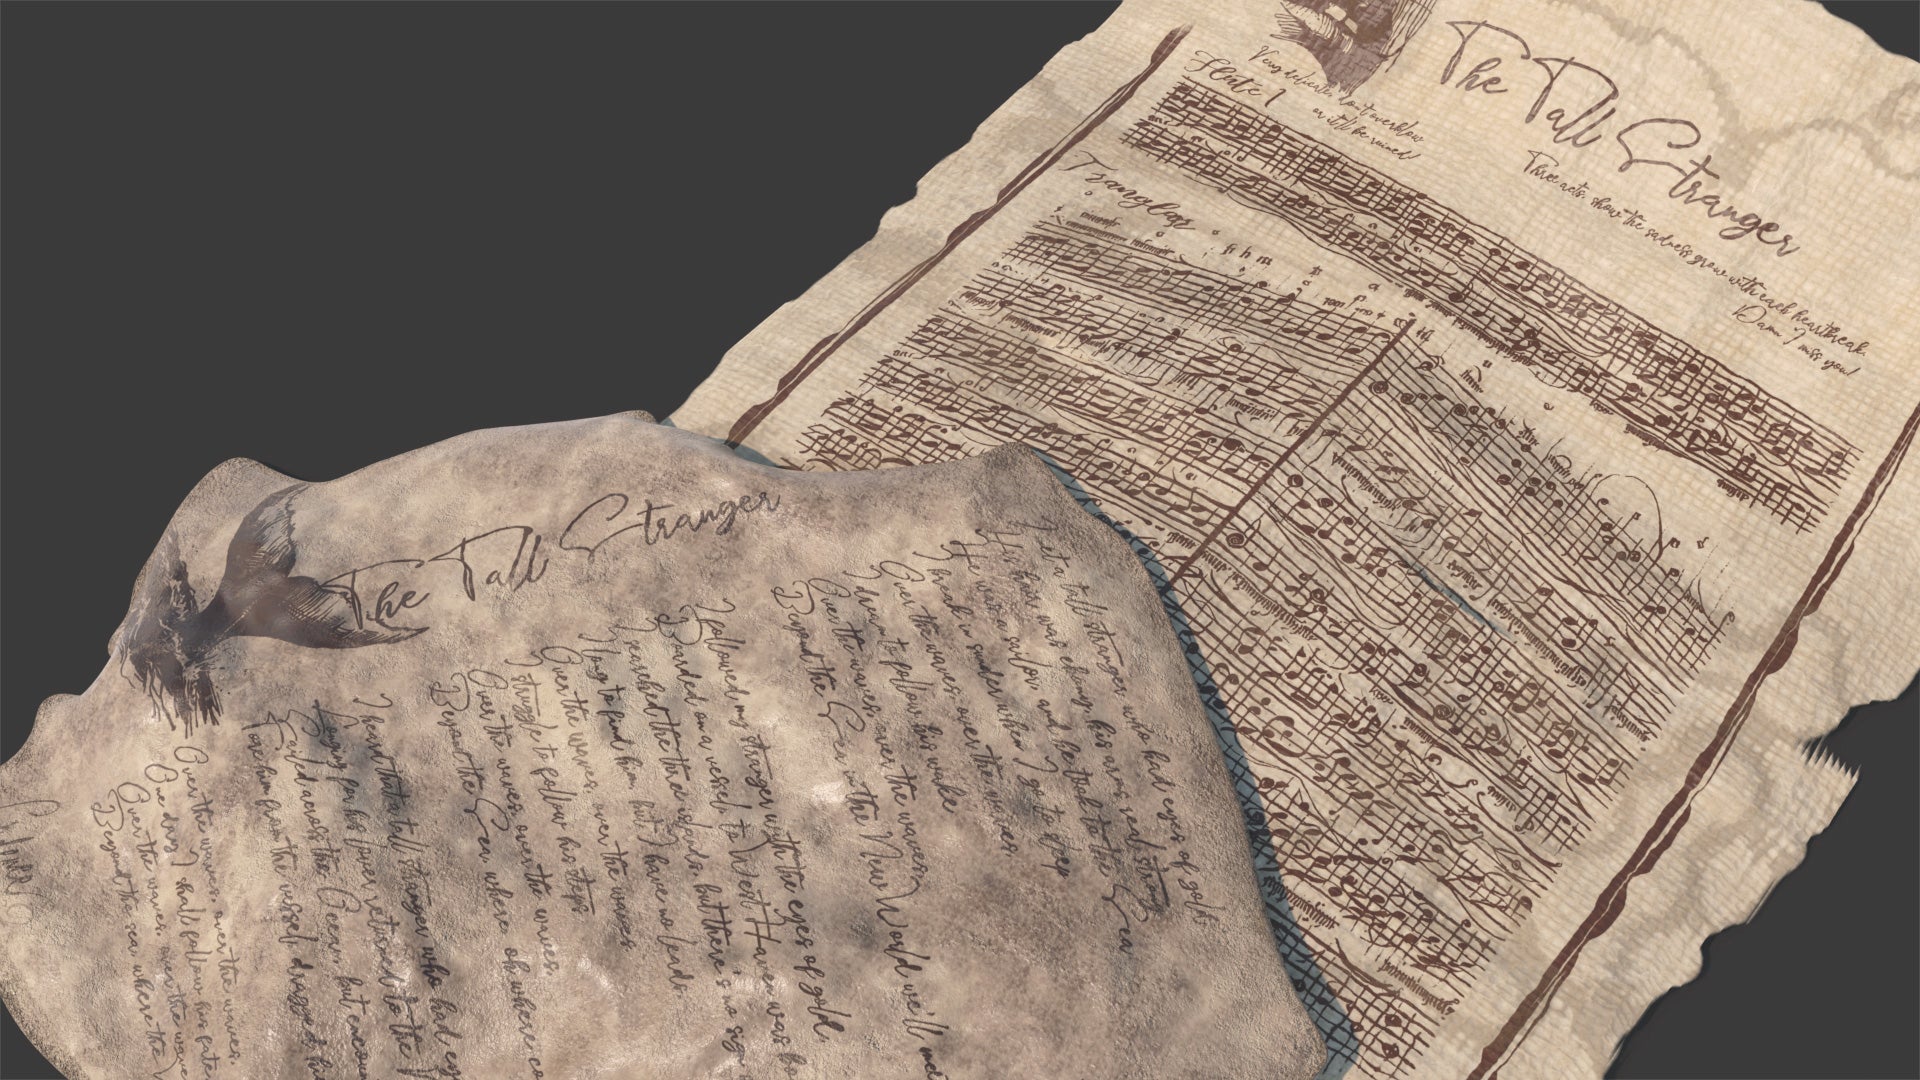 The Tall Stranger
Very delicate, don't overblow
or it'll be ruined!
Three acts, show the sadness grow with each heartbreak.
Damn I miss you!
Flute 1
The Tall Stranger
Met a tall stranger, who had eyes of gold
His hair was ebony, his arms real strong
He was a sailor, and he took to the Sea
I break in sunder when I go to sleep
Over the waves, over the waves,
I yearn to follow his wake
Over the waves, over the waves,
Beyond the Sea in the New World we'll meet
I followed my stranger with the eyes of gold,
Boarded on a vessel, to West Haven was bo
I searched the three islands, but there's no sig
I long to find him, but I have no leads.
Over the waves, over the waves
I struggle to follow his steps
Over the waves, over the waves,
Beyond the Sea where, oh where co
I heard that a tall stranger who had ey
Longing for his lover returned to the
Sailed across the Ocean, but encoun
Tore him from the vessel, dragged hi
Over the waves, over the waves,
One day I shall follow his fate
Over the waves, over the wave
Beyond the sea, where the